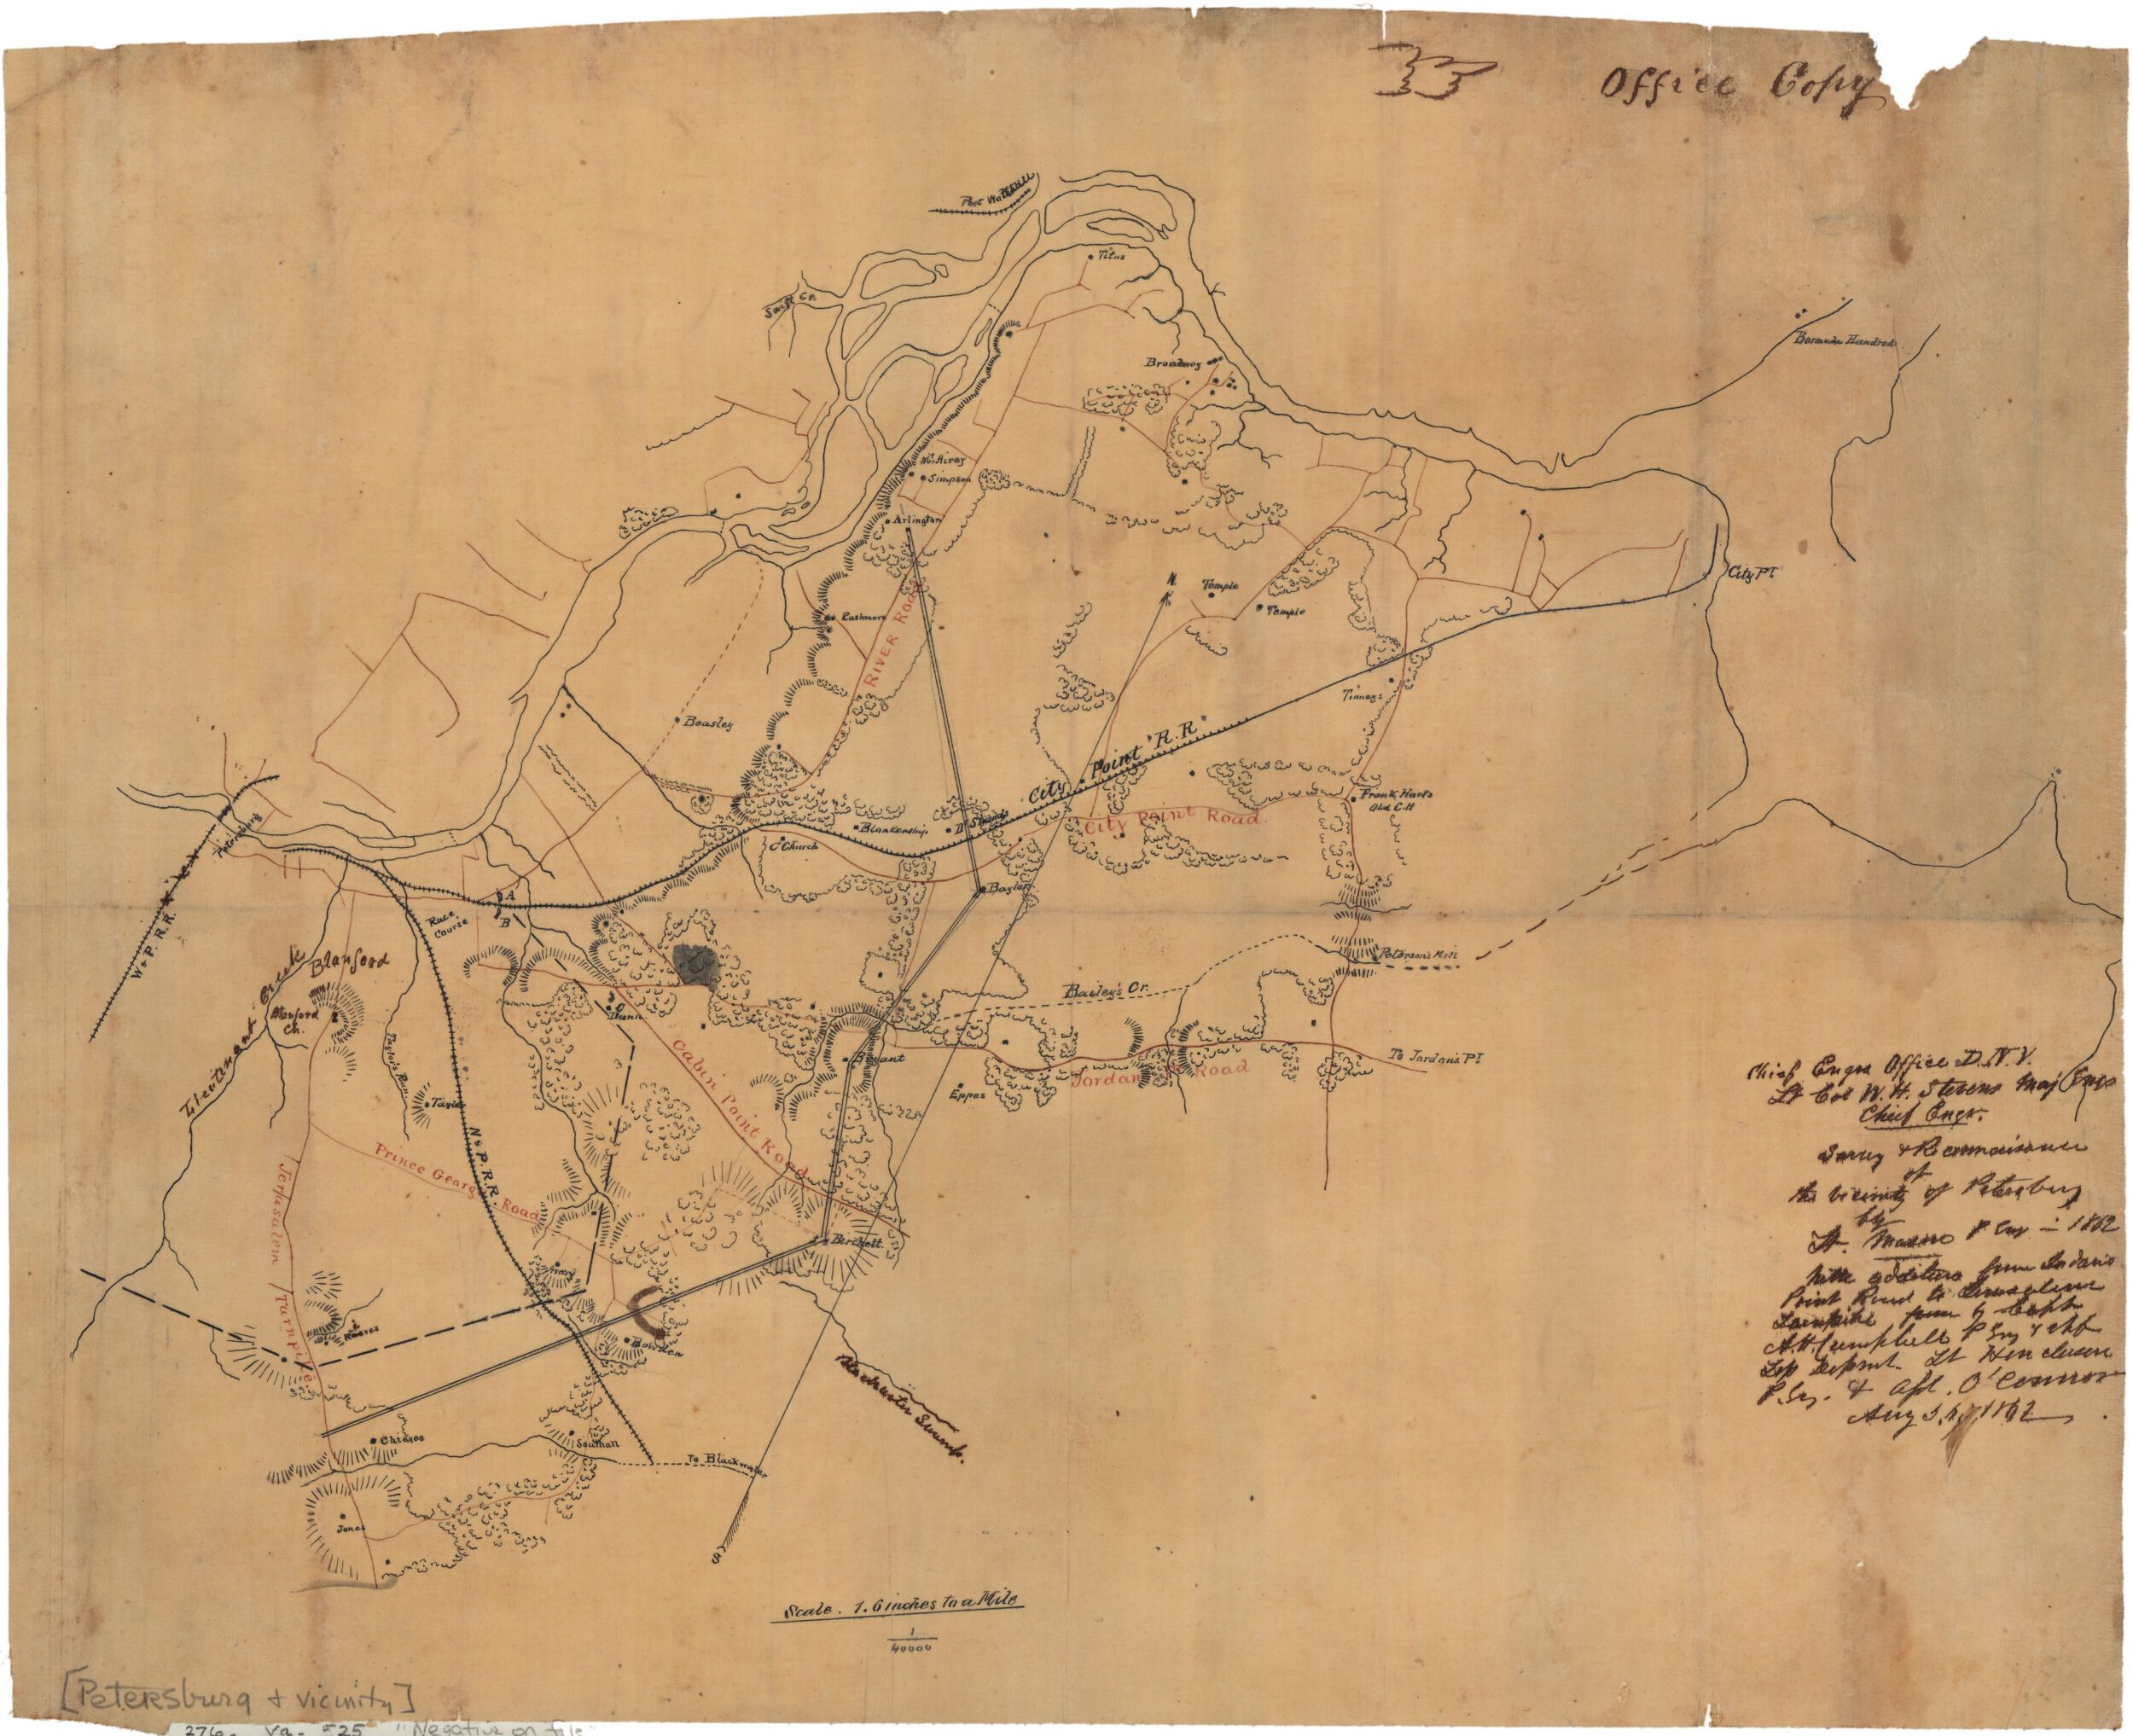 Office Copy
Port Walthall
Titus
Swift Cr.
Bermuda Hundred
Broadway
McAivey
Simpson
Arlington
City Pt
Temple
Temple
Cashmere
RIVER Road
Tinneys
Beasley
City Point R.R
Frank Harts
Old C.H
City Point Road.
Petersburg
Blankership
Church
Baylor
A
B
Race
Course
W & P. R.R.
Blanford
Peterson's Mill
Bailey's Cr.
Lieutenant Creek
Blanford
Ch.
Dunn
Taylor's Run
Bryant
To Jordan's Pt
Jordan Road
Eppes
Cabin Point Road
N & P. R.R.
Prince George Road
Jerusalem Turnpike
Birchett
Reeves
Bowden
Blackwater Swamp.
Chieves
Southall
To Blackwater
Jones
S
Chief Engrs Office D. N. V.
Lt Col W. H. Stevens Maj Engs
Chief Engr.
Survey & Reconnaissance
of
the vicinity of Petersburg
by
Lt. Masero P Eng - 1862
With additions from Jordans
Point Road to Jerusalem
Turnpike from by Capt
A.H. Campbell P Eng & chf
Top Depmt. Lt
P. Eng. & Asst. O'Connor
Aug 5, 6, 7, 1862
Scale. 1.6 inches to a Mile
1
40000
[Petersburg + vicinity]
276- Va- 525 "Negative on file"